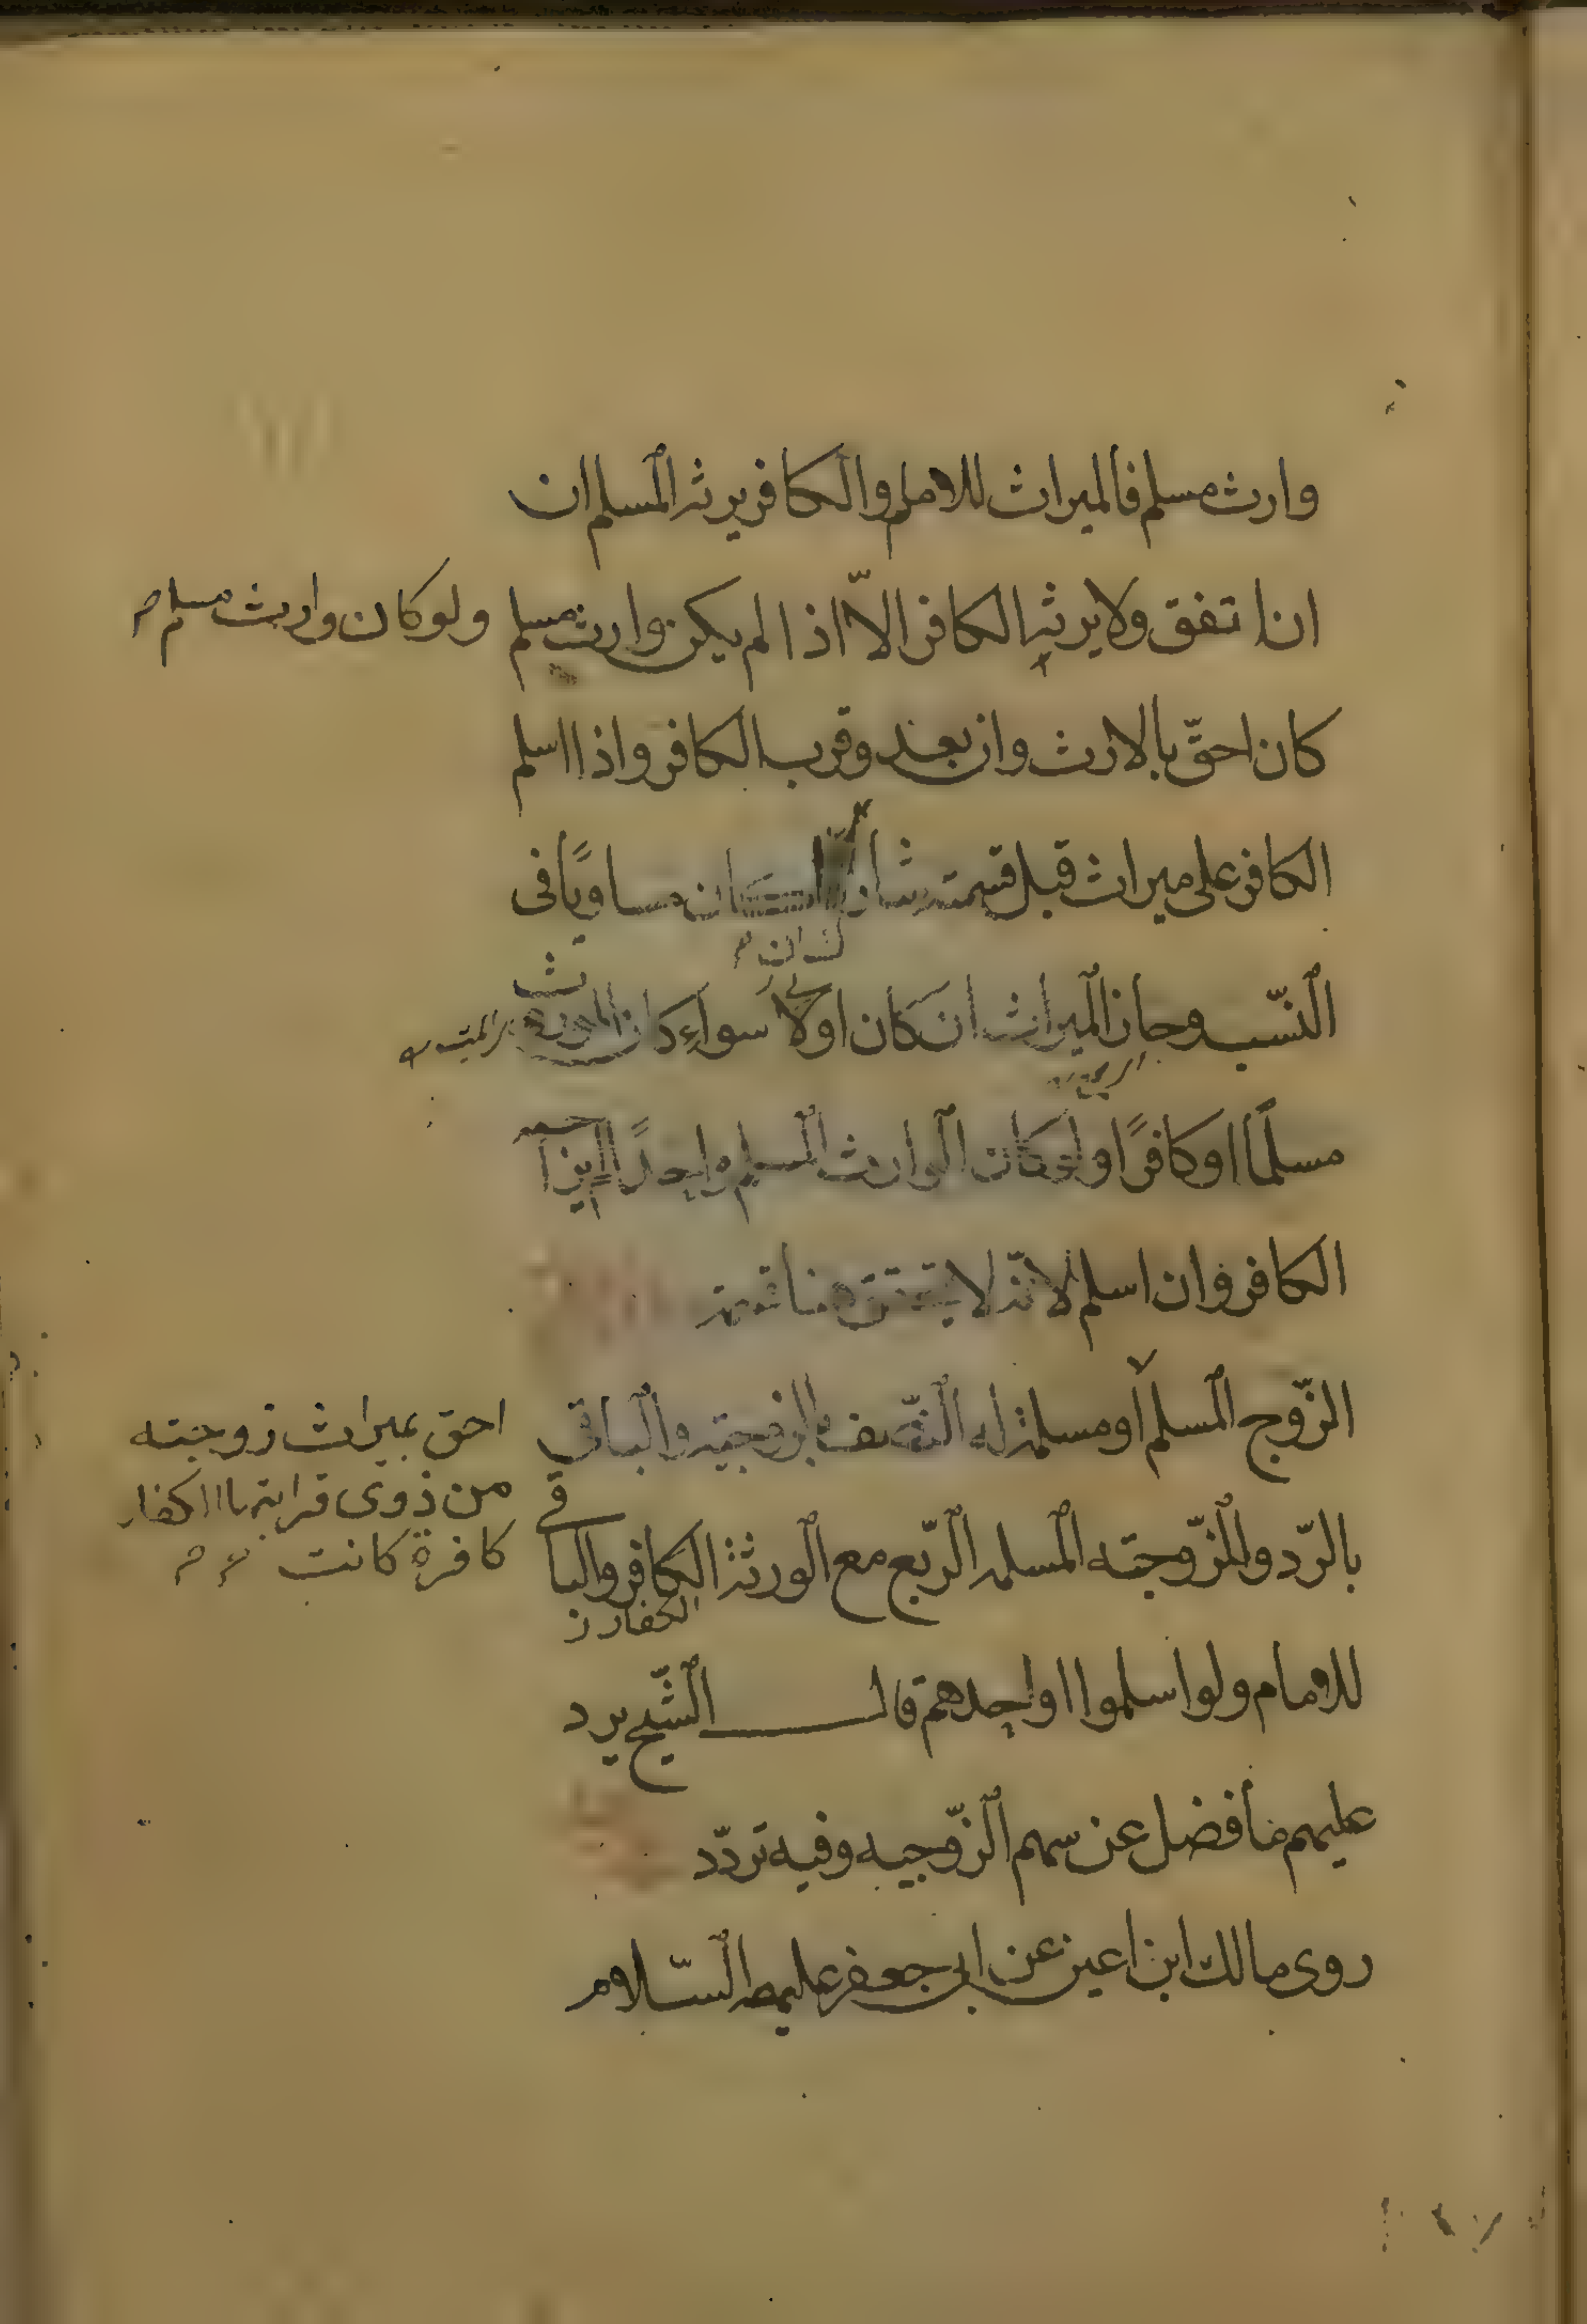 وارث مسلم فالميراث للامام والكافر يرثه المسلم ان
ان اتفق ولا يرثه الكافر الا اذا لم يكن وارث مسلم
ولو كان وارث مسلم
كان احقّ بالارث وان بعد وقرب الكافر واذا اسلم
الكافر على ميراث قبل قسمته شارك ان كان مساويًا فى
النّسب وحاز الميراث ان كان اولا سواء كان المورث
مسلمًا او كافرًا ولو كان الوارث المسلم واحدًا
الكافر وان اسلم لانّه لا يتحقق هنا قسمة
الزّوج المسلم او مسلمة له النّصف بالزوجيه والباقى
احق بميراث زوجته
من ذوى قرابتها الكفار
كافرة كانت
بالرّد وللزّوجته المسلمه الرّبع مع الورثة الكافر والباقى
الكفار
للامام ولو اسلموا او احدهم قال الشّيخ يرد
عليهم ما فضل عن سهم الزّوجيه وفيه تردّد
روى مالك ابن اعين عن ابى جعفر عليه السّلام